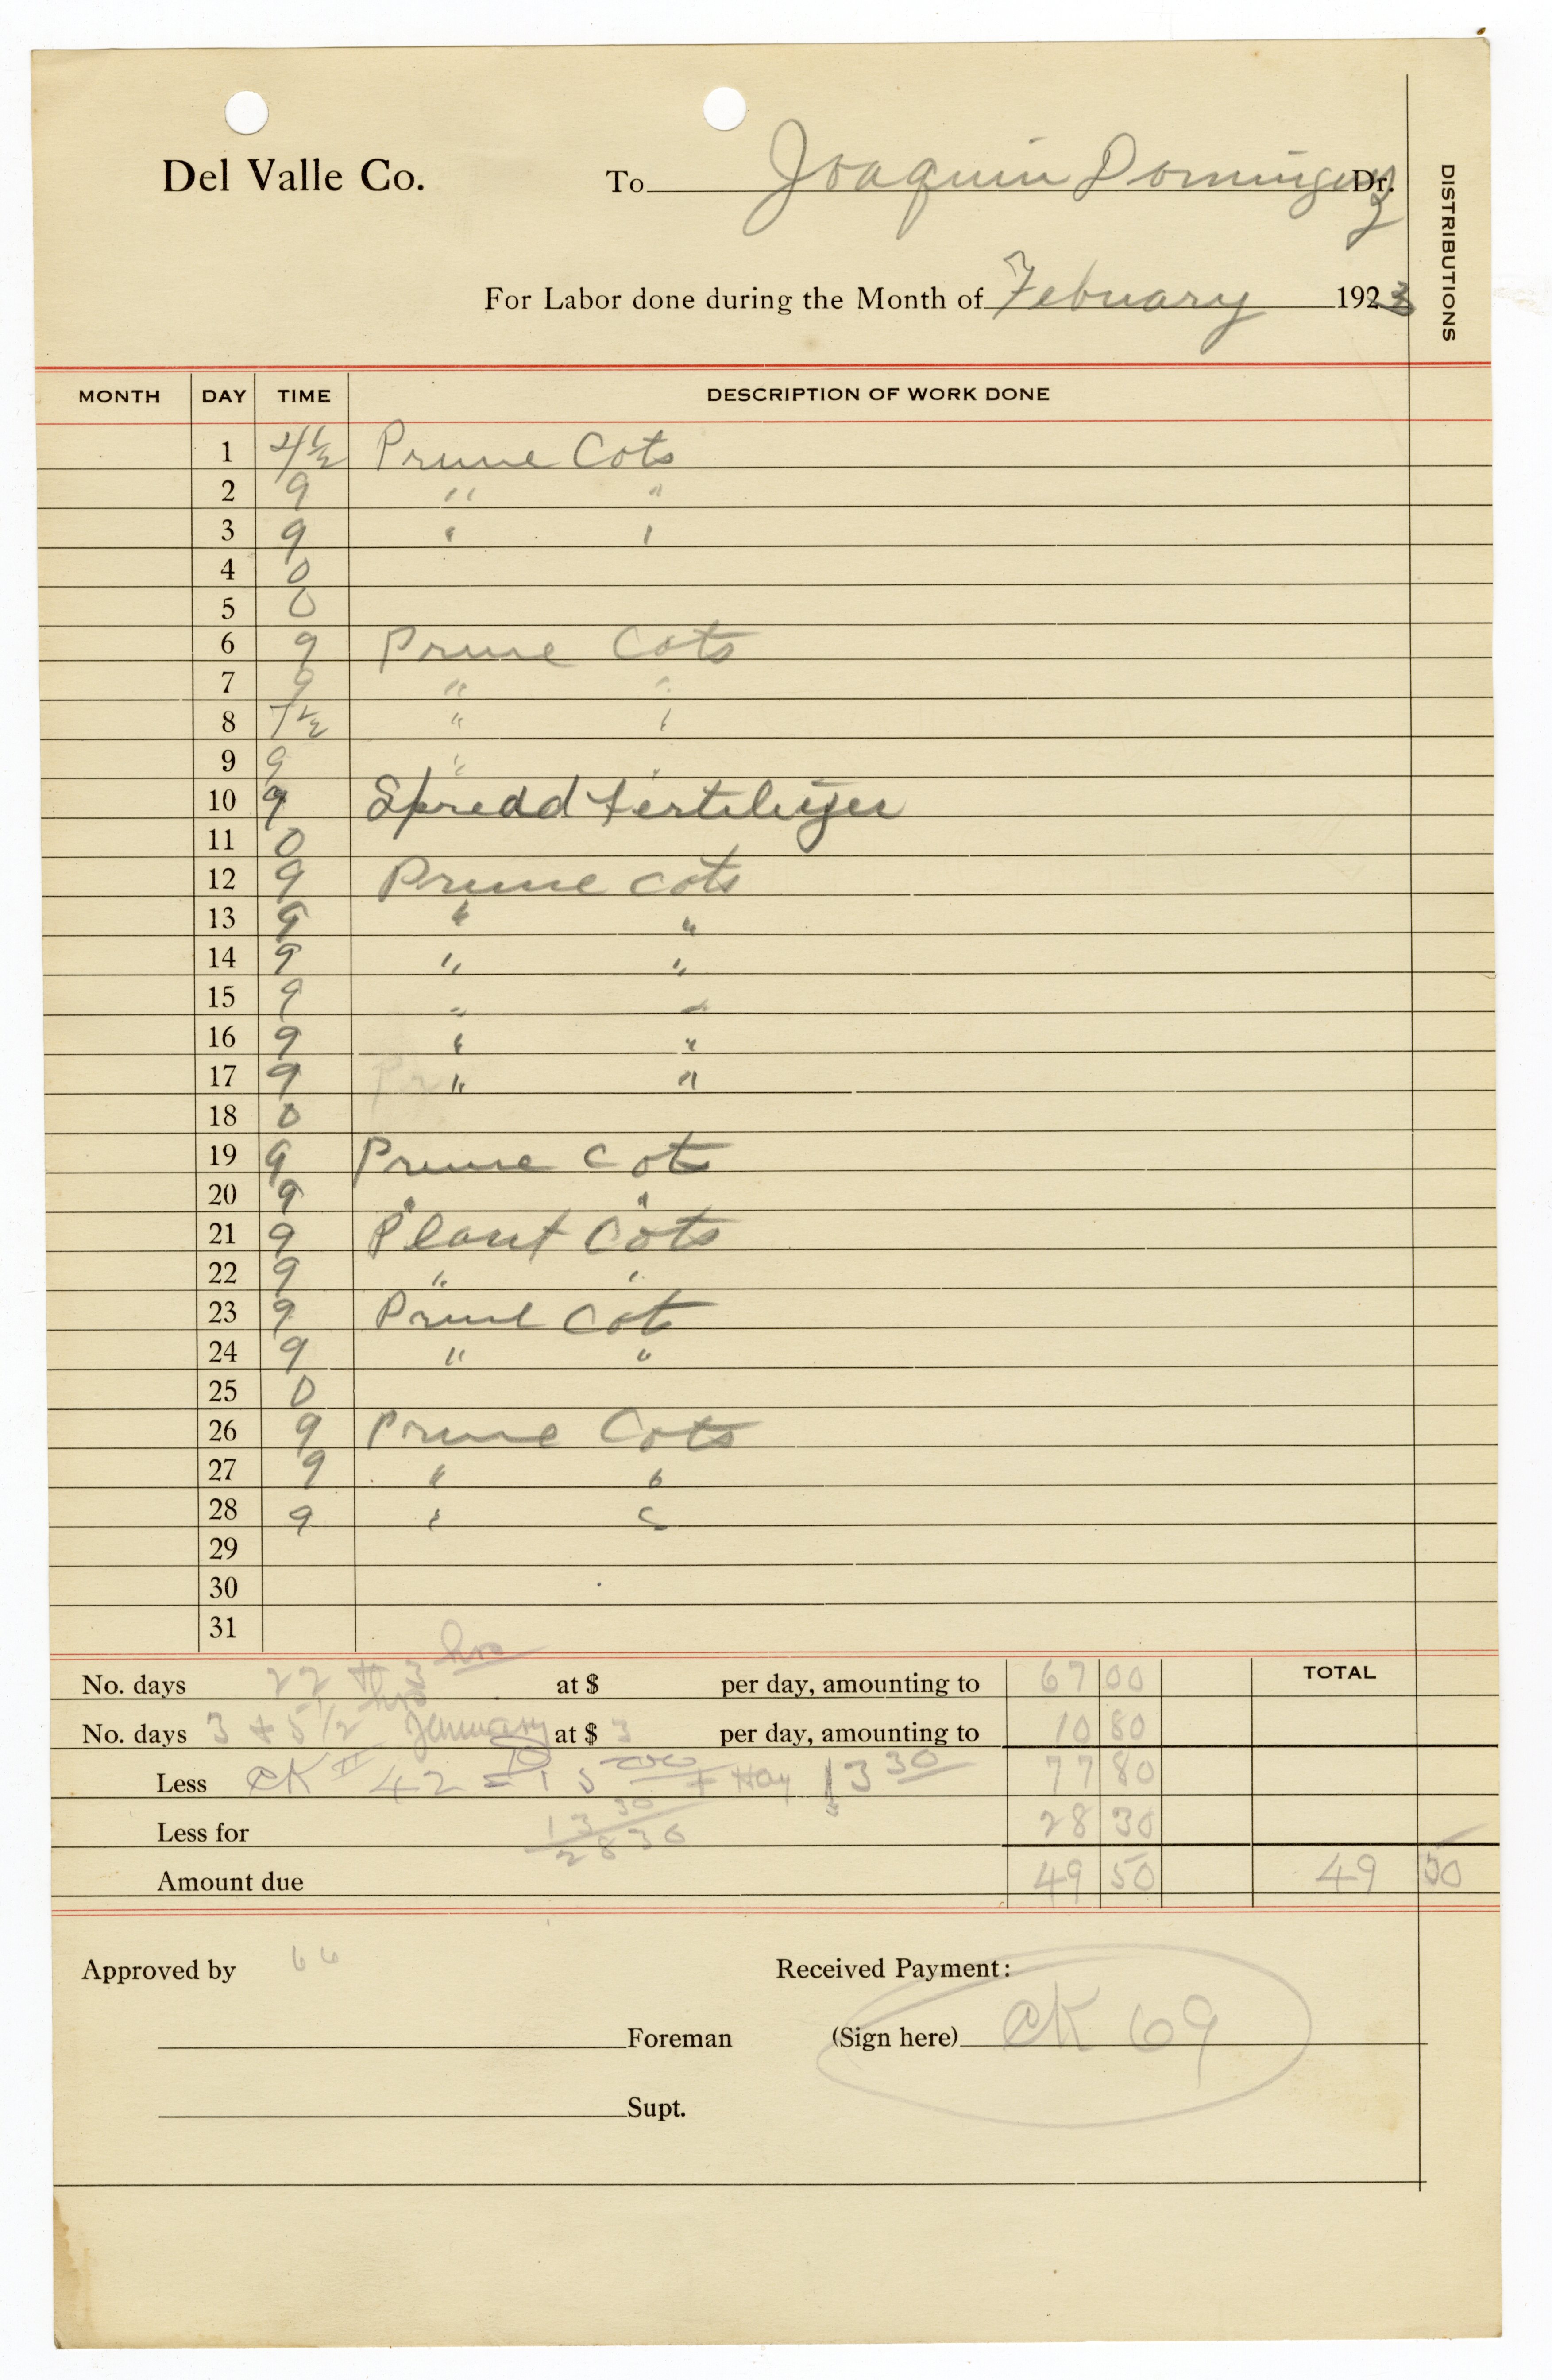 Del Valle Co. To Joaquin Dominguez Dr.
DISTRIBUTIONS
For Labor done during the Month of Febuary 1923
MONTH DAY TIME DESCRIPTION OF WORK DONE
1 4 1/2 Prune Cots
2 9 " "
3 9 " "
4 0
5 0
6 9 Prune Cots
7 9 " "
8 7 1/2 " "
9 9 " "
10 9 Spredd fertilizer
11 0
12 9 Prune cots
13 9 " "
14 9 " "
15 9 " "
16 9 " "
17 9 " "
18 0
19 9 Prune Cots
20 9 " "
21 9 Plant Cots
22 9 " "
23 9 Prune Cot
24 9 " "
25 0
26 9 Prune Cots
27 9 " "
28 9 " "
29
30
31
No. days 22 + 3 hrs at $ per day, amounting to 67 00 TOTAL
No. days 3 + 5 1/2 hrs January at $ 3 per day, amounting to 10 80
Less CK # 42 = 15 00 + Hay 13 30 77 80
Less for 13 30 28 30
28 30
Amount due 49 50 49 50
Approved by Received Payment:
Foreman (Sign here) CK 69
Supt.